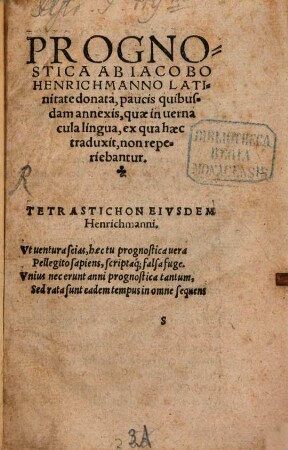 PROGNO-
STICA AB IACOBO
HENRICHMANNO LATI-
nitate donata, paucis quibus-
dam annexis, quæ in uerna
cula lingua, ex qua hæc
traduxit, non repe-
riebantur.
BIBLIOTHECA
REGIA
MONACENSIS
TETRASTICHON EIVSDEM
Henrichmanni.
Vt ventura scias, hæc tu prognostica uera
Pellegito sapiens, scriptaq; falsa fuge.
Vnius nec erunt anni prognostica tantum,
Sed rata sunt eadem tempus in omne sequens
S
R
3A